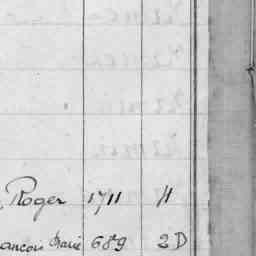 Roger 1711 11
ancois Marie 689 2D